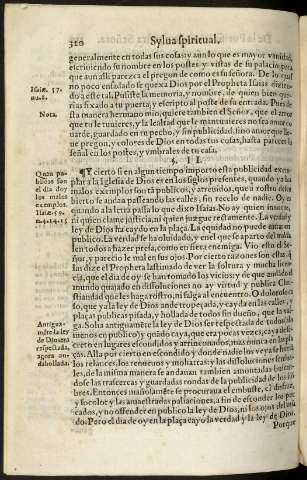 310 Sylua spiritual.
generalmente en todas sus cosas: y aun lo que es muy or
escriuiendo su nombre en los postes y vistas de su palacio, para
que aun alli parezca el pregon de como es su señora. De lo qual
no poco enfadado se quexa Dios por el Propheta Isaias
Isaiæ. 57. do a esta tal. Pusiste la memoria, y nota
nu.8. rias fixado a tu puerta, y escripto al poste de su entrada. Pues de
Nota. sta manera hermano mio, quiere tambien el Señor, que el amor
que tu le tuuieres, y la lealtad que le mantuuieres no sea
uarde, guardado en tu pecho, y sin publicidad, sino amor que lle
ue pregon, y colores de Dios en todas tus cosas, hasta parecer la
señal en los postes, y vmbrales de tu casa.
§. II.
Quan pu
blicos son
el dia doy
los malos
exemplos.
Isaiæ. 59.
nu.14.15
¶ Y cierto si en algun tiempo importo esta publicidad exem
plar a la Iglesia de Dios en los siglos presentes, quando ya los
malos exemplos son tã publicos, y atreuidos, que a rostro descu
bierto se andan passeando las calles, sin recelo de nadie. O
quando a la letra passa lo que dixo Isaias. No ay quien inuoque,
ni quien clame justicia, ni quien juzgue rectamente. La verdad y
ley de Dios ha caydo en la plaça. La equidad no puede entrar en
publico. La verdad se ha oluidado, y el que se aparto del mal
len todos a hazer presa, como en si fuera enemiga. Vio esto el Se-
ñor, y parecio le mal en sus ojos. Por cierto razon son estas
las dize el Propheta lastimado de ver la soltura y mucha licen
cia, que el dia de oy se han tomado los vicios: y de que andando el
mundo quajado en dissoluciones no ay virtud y publica Chri-
stiandad que les haga rostro, ni salga al encuentro. O dolorosos
que, y a la ley de Dios anda tropeçada, y cayda en las calles, y
plaças publicas pisada, y hollada de todos sin dueño, que la val
Antigua-
mẽte la ley
de Dios era
respectada,
agora an-
da hollada.
ga. Solia antiguamẽte la ley de Dios ser respectada de todos
menos en publico: y quãdo caya, que era pocas vezes, caya de se-
creto en lugares escondidos y arrinconados, mas nunca en la pla
ças. Alla por cierto en escondido y donde nadie los veya
los relances, los renueuos y mohatras: y las dissoluciones
les, de la misma manera se andauan tambien amontadas buscan
dose las trascercas y guardadas rondas de la publicidad de los hõ
bres. Entonces mañosamẽte se procuraua el embuste, el disfraz,
y socolor y las amaestradas paliaciones, a fin de esconder los pec
cados, y no offender en publico la ley de Dios, ni los ojos del mũ
do. Pero el dia de oy en la plaça cayo la verdad y la ley de Dios.
Porque